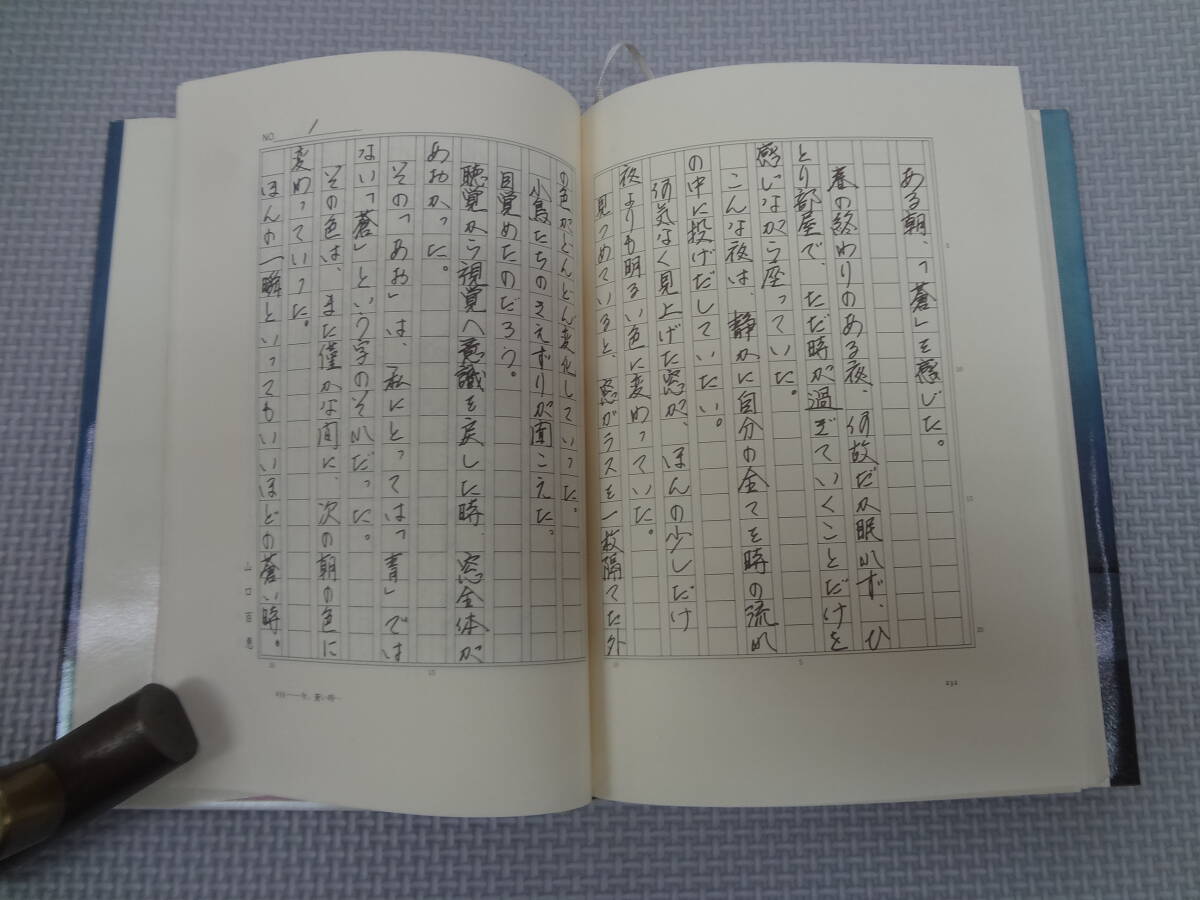 ある朝、「蒼」を感じた。
春の終わりのある夜、何故だか眠れず、ひ
とり部屋で、ただ時が過ぎていくことだけを
感じながら座っていた。
こんな夜は、静かに自分の全てを時の流れ
の中に投げだしていたい。
何気なく見上げた窓が、ほんの少しだけ
夜よりも明るい色に変わっていた。
見つめていると、窓ガラスを一枚隔てた外
の色がどんどん変化していった。
小鳥たちのさえずりが聞こえた。
目覚めたのだろう。
聴覚から視覚へ意識を戻した時、窓全体が
あおかった。
その「あお」は、私にとっては「青」では
ない「蒼」という字のそれだった。
その色は、また僅かな間に、次の朝の色に
変わっていった。
ほんの一瞬といってもいいほどの蒼い時。
NO. 1
山口百恵
5
10
15
20
5
10
15
20
232